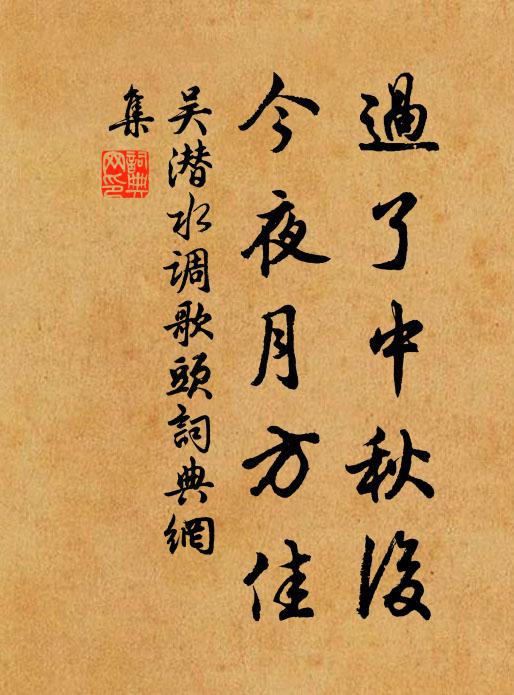 過了中秋後
今夜月方佳
吴潜水调歌頭詞典網
集
詞典
网印